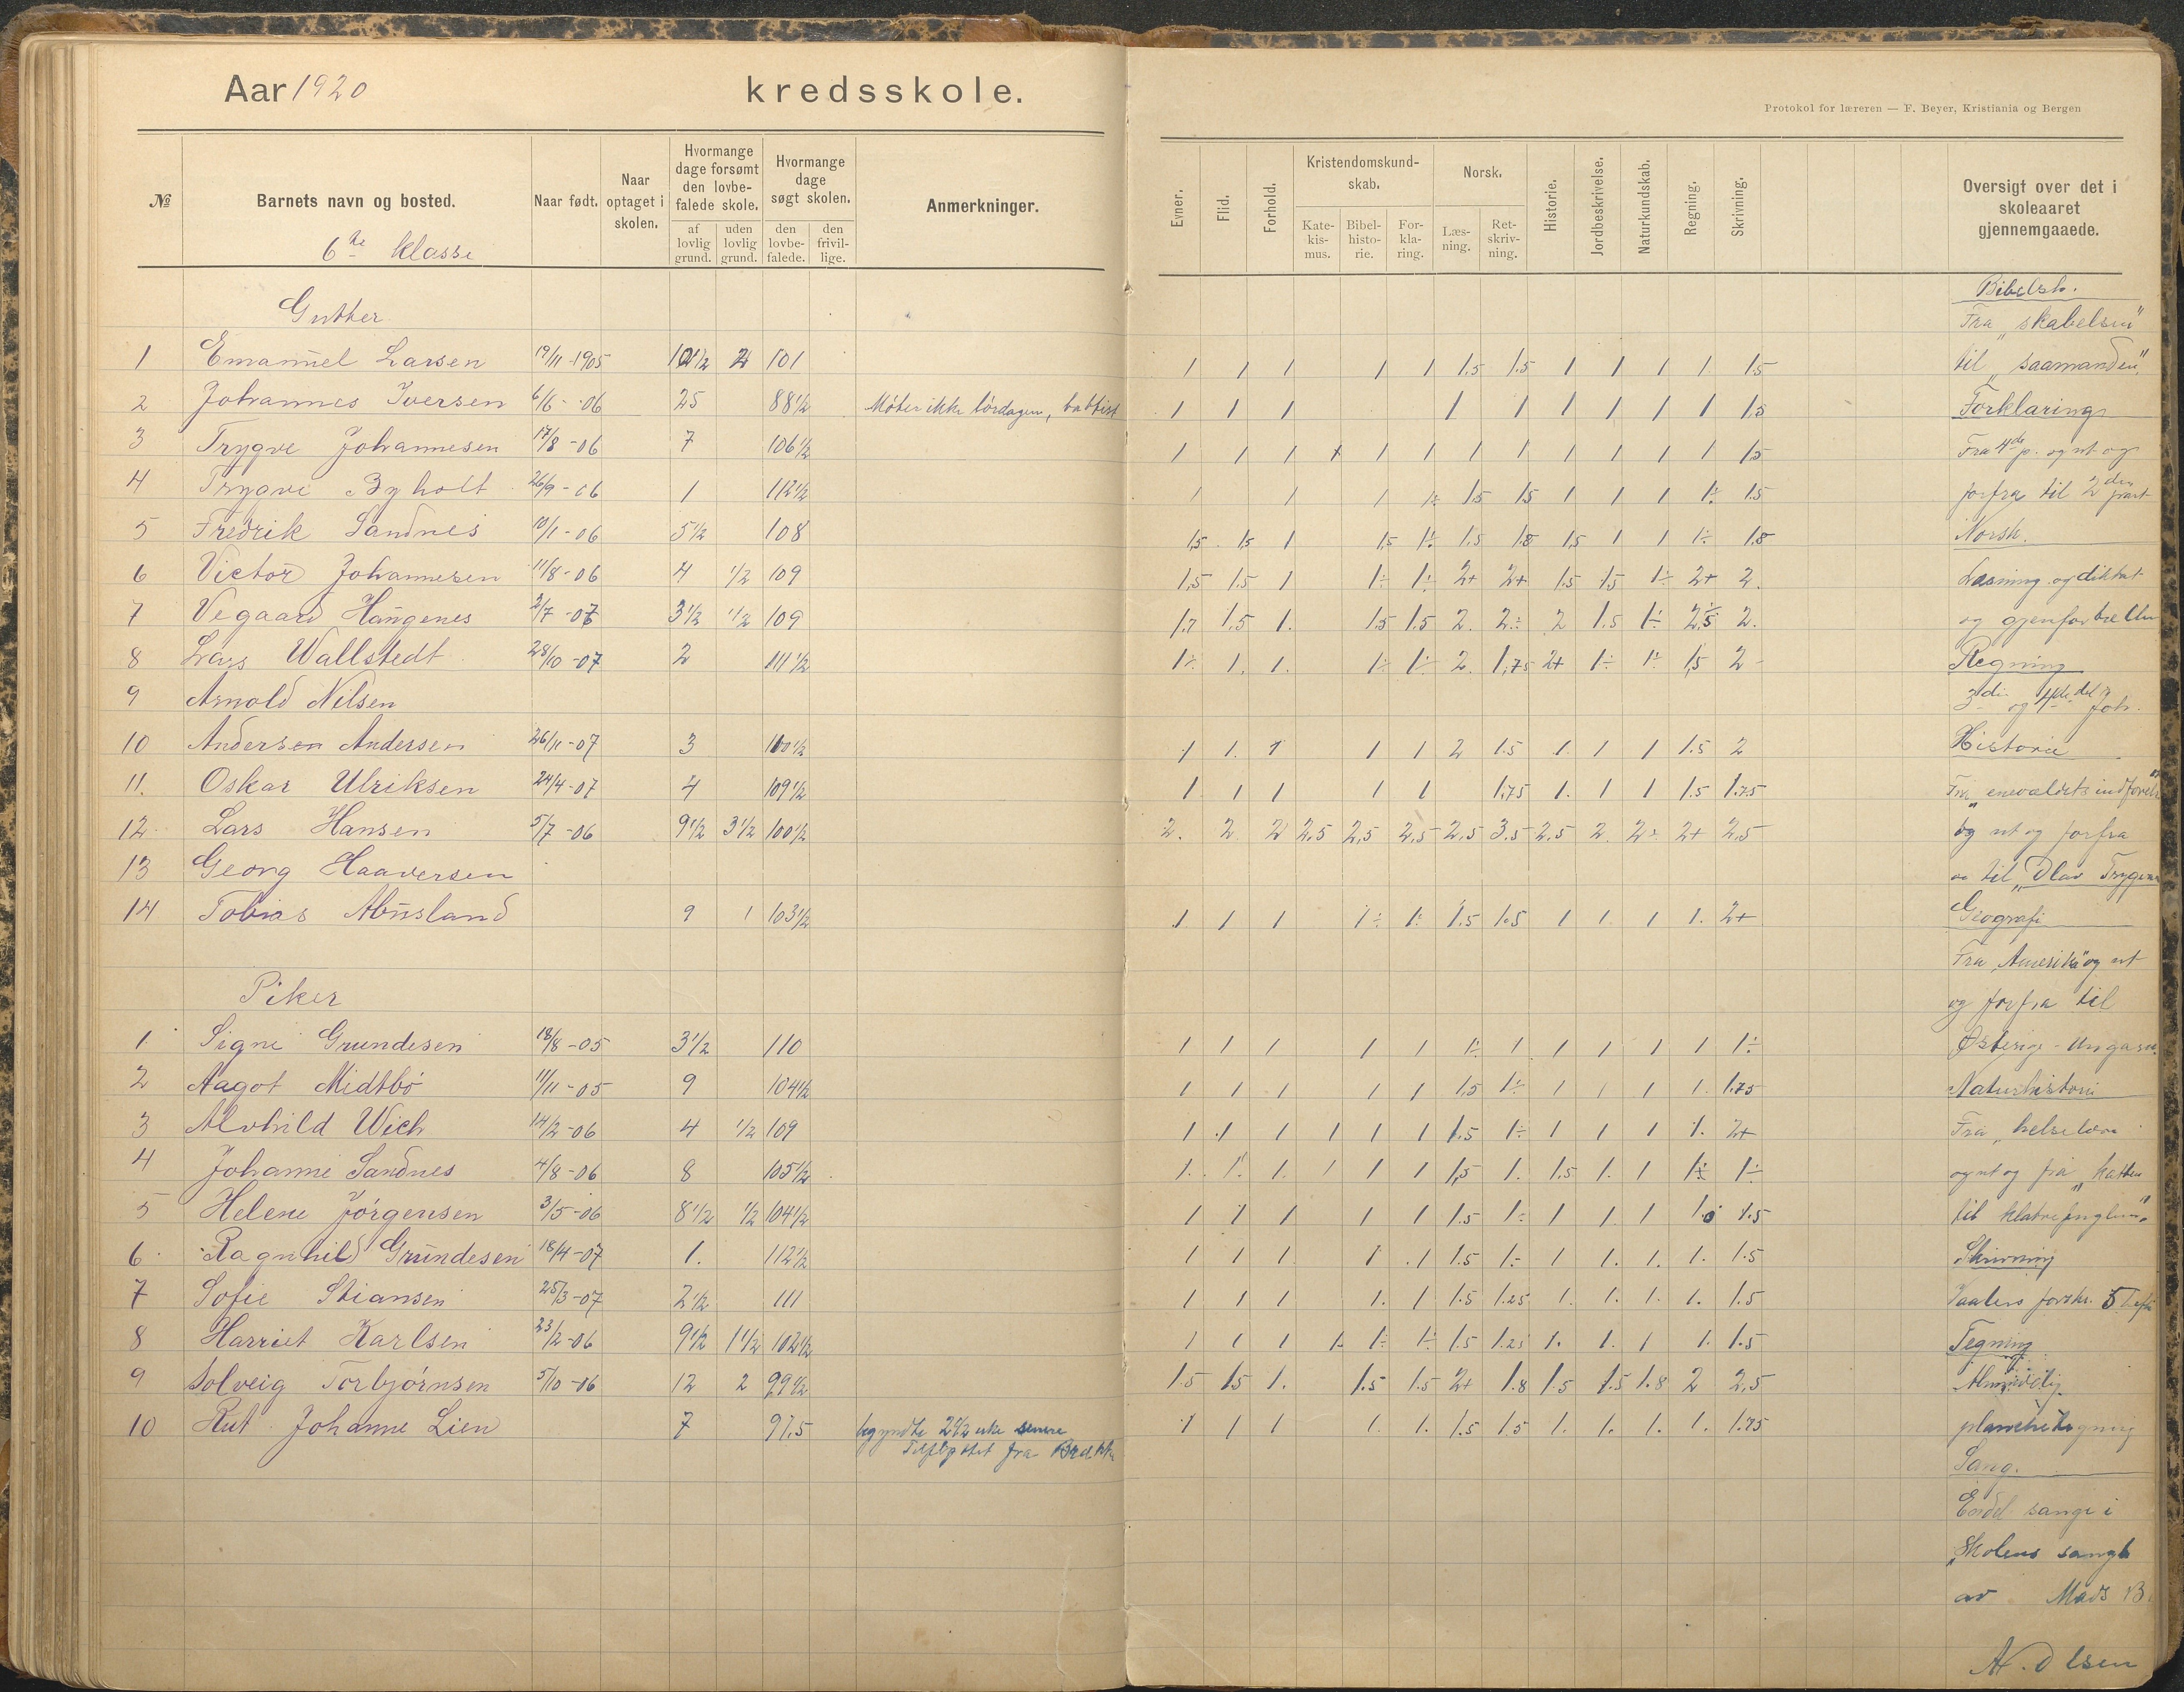 Aar 1920 kredsskole.
Protokol for læreren — F. Beyer, Kristiania og Bergen
№ Barnets navn og bosted. Naar født. Naar optaget i skolen. Hvormange dage forsømt den lovbefalede skole. af lovlig grund. uden lovlig grund. Hvormange dage søgt skolen. den lovbefalede. den frivillige. Anmerkninger.
Evner. Flid. Forhold. Kristendomskundskab. Katekismus. Bibelhistorie. Forklaring. Norsk. Læsning. Retskrivning. Historie. Jordbeskrivelse. Naturkundskab. Regning. Skrivning. Oversigt over det i skoleaaret gjennemgaaede.
6te klasse
Gutter
1 Emanuel Larsen 19/11-1905 101 1 1 1 1 1 1.5 1.5 1 1 1 1. 1.5
2 Johannes Iversen 6/6-06 25 88 1/2 Møter ikke lørdagen, babtist 1 1 1 1 1 1 1 1 1 1.5
3 Trygve Johannesen 17/8-06 7 106 1/2 1 1 1 1 1 1 1 1 1 1 1 1 1.5
4 Trygve Byholt 26/9-06 1 112 1/2 1 1 1 1÷ 1.5 1.5 1 1 1 1÷ 1.5
5 Fredrik Sandnes 10/1-06 5 1/2 108 1.5 1.5 1 1.5 1÷ 1.5 1.8 1.5 1 1 1÷ 1.8
6 Victor Johannesen 11/8-06 4 1/2 109 1.5 1.5 1 1÷ 1÷ 2+ 2+ 1.5 1.5 1÷ 2+ 2.
7 Vegaard Haugenes 2/7-07 3 1/2 1/2 109 1.7 1.5 1. 1.5 1.5 2. 2÷ 2 1.5 1÷ 2.5 2.
8 Lars Wallstedt 28/10-07 2 111 1/2 1÷ 1. 1. 1÷ 1÷ 2. 1.75 2+ 1÷ 1÷ 1.5 2
9 Arnold Nilsen
10 Andersen Andersen 26/11-07 3 110 1/2 1 1. 1 1 1 2 1.5 1. 1 1 1.5 2
11. Oskar Ulriksen 24/4-07 4 109 1/2 1 1 1 1 1 1.75 1. 1 1 1.5 1.75
12 Lars Hansen 5/7-06 9 1/2 3 1/2 100 1/2 2. 2 2 2.5 2.5 2.5 2.5 3.5 2.5 2. 2÷ 2+ 2.5
13 Georg Haaversen
14 Tobias Abusland 9 1 103 1/2 1 1 1 1÷ 1÷ 1.5 1.5 1 1. 1 1. 2+
Piker
1 Signe Grundesen 18/8-05 3 1/2 110 1 1 1 1 1 1÷ 1 1 1 1 1 1÷
2 Aagot Midtbø 11/11-05 9 104 1/2 1 1 1 1 1 1.5 1÷ 1 1 1 1. 1.75
3 Alvhild Wich 14/2-06 4 1/2 109 1 1 1 1 1 1 1.5 1÷ 1 1 1 1. 2+
4 Johanne Sandnes 4/8-06 8 105 1/2 1. 1. 1. 1 1 1 1.5 1. 1.5 1. 1 1÷ 1÷
5 Helene Jørgensen 3/5-06 8 1/2 1/2 104 1/2 1 1 1 1 1 1.5 1÷ 1 1. 1 1. 1.5
6 Ragnhild Grundesen 18/4-07 1. 112 1/2 1 1 1 1 1 1.5 1.÷ 1 1. 1. 1. 1.5
7 Sofie Stiansen 25/3-07 2 1/2 111 1 1 1 1. 1 1.5 1.25 1. 1. 1. 1. 1.5
8 Harriet Karlsen 23/2-06 9 1/2 1 1/2 102 1/2 1 1 1 1. 1÷ 1÷ 1.5 1.25 1. 1. 1 1. 1.5
9 Solveig Torbjørnsen 5/10-06 12 2 99 1/2 1.5 1.5 1. 1.5 1.5 2+ 1.8 1.5 1.5 1.8 2 2,5
10 Rut Johanne Lien 7 97,5 begyndte 2 1/2 uke senere 1 1 1 1. 1. 1.5 1.5 1. 1. 1. 1. 1.75
Tilflyttet fra
Bibelsh.
Fra „skabelsen"
til „saamanden"
Forklaring
Fra 4de p. og ut og
forfra til 2den part
Norsk.
Læsning og diktat
og gjenfortællin
Regning
3die og 4de del
Historie
Fra „eneveldets indførelse"
og ut og forfra
til „Olav Trygva
Geografi
Fra „Amerika" og ut
og forfra til
Østerige-Ungarn.
Naturhistorie
Fra „helselære
og ut og fra „katten
til klatrefuglene"
Skrivning
forskr. 5 hefte
Tegning
Almindelig
planchetegning
Sang.
Endel sange i
„Skolens sangb
av Mads B
N. Olsen